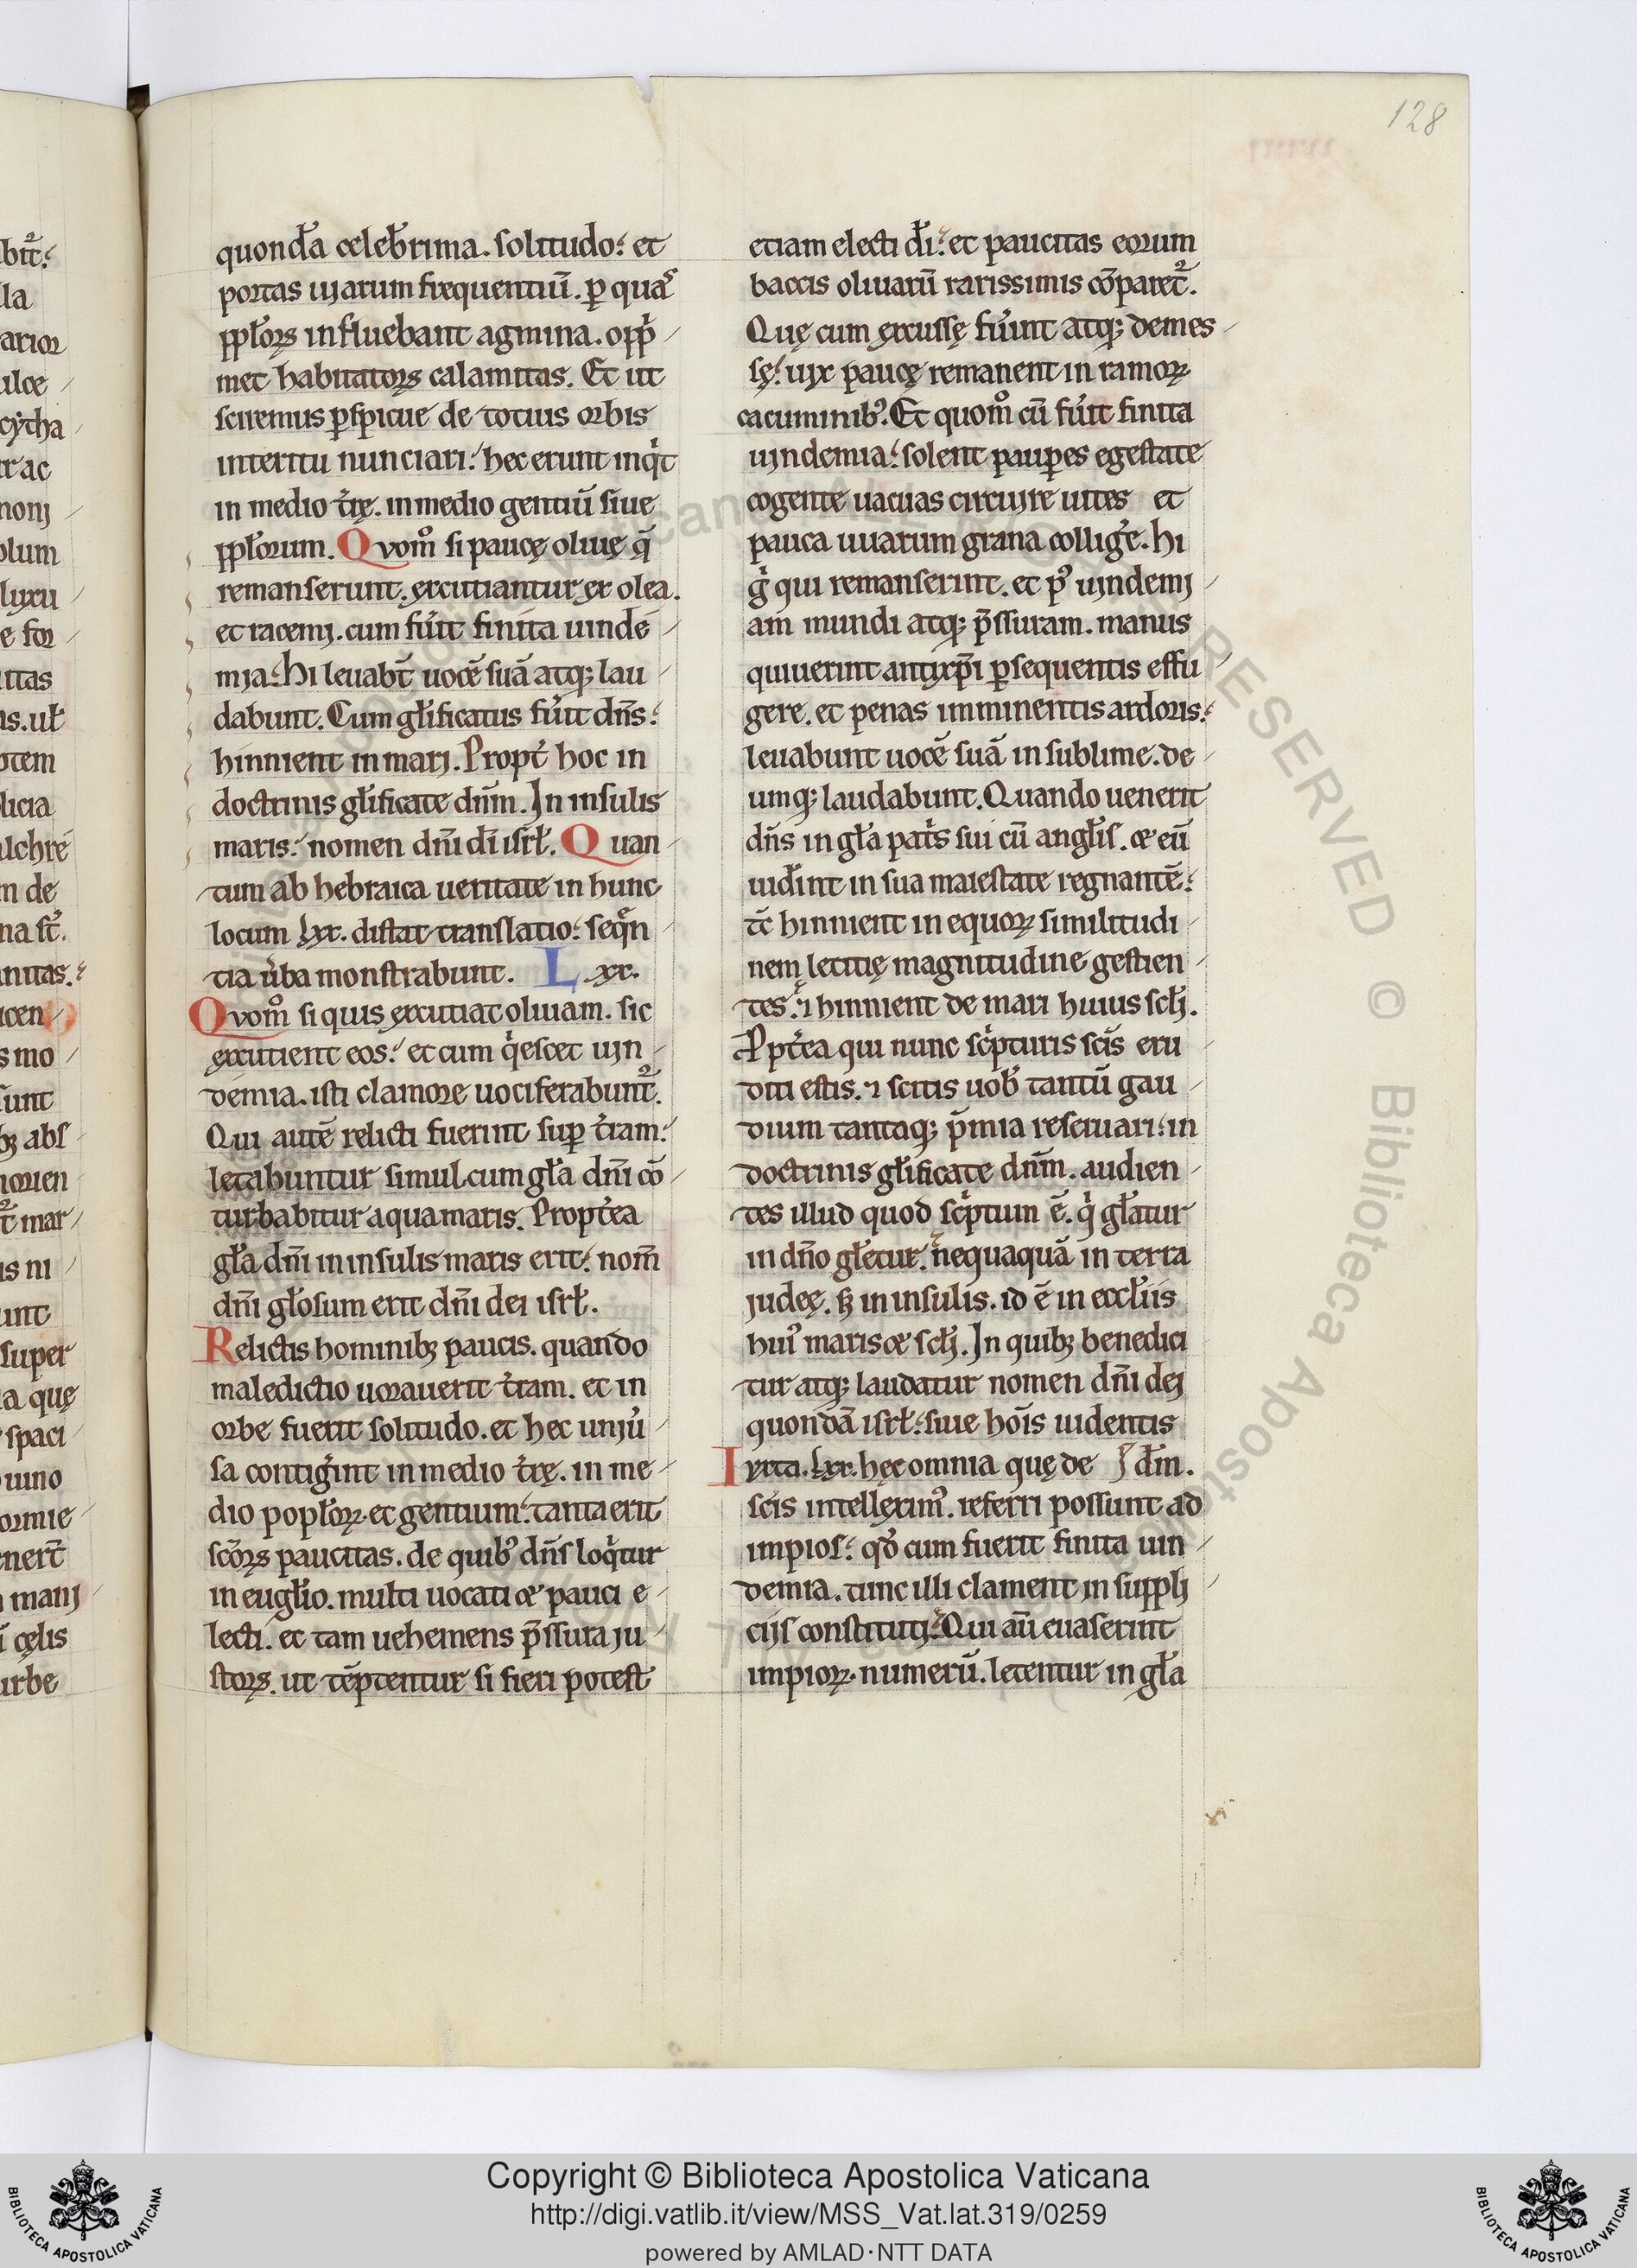 128
quond̃a celeb̃rima. solitudo: et
portas uiarum frequentiũ. ꝑ quaˢ
pp̃lorꝫ influebant agmina. opp̃
met habitatorꝫ calamitas. Et ut
sciremus ꝑspicue de totius orbis
interitu nunciari: hec erunt inqͥt
in medio t̃rę. in medio gentiũ siue
pp̃lorum. Quom̊ si paucę oliuę q̃
remanserunt. excutiantur ex olea.
et racemj. cum fũit finita uinde
mia: hi leuab̃t uocẽ suã atqꝫ lau
dabunt. Cum gl̃ificatus fũit dñs:
hinnient in mari. Propt̃ hoc in
doctrinis gl̃ificate dñm. In insulis
maris: nomen dñi dĩ isrł. Quan
tum ab hebraica ueritate in hunc
locum Lxx. distat translatio: seq̃n
tia ũba monstrabunt. Lxx.
Quom̊ si quis excutiat oliuam. sic
excutient eos: et cum qͥescet uin
demia. isti clamore uociferabunt᷑.
Qui autẽ relicti fuerint suꝑ t̃ram:
letabuntur simul cum gl̃a dñi cõ
turbabitur aqua maris. Propt̃ea
gl̃a dñi in insulis maris erit: nom̃
dñi gl̃osum erit dñi dei isrł.
Relictis hominibꝫ paucis. quando
maledictio uorauerit t̃ram. et in
orbe fuerit solitudo. et hec uniũ
sa contig̃int in medio t̃rę. in me
dio popl̃oꝝ. et gentium: tanta erit
sc̃orꝫ paucitas. de quibꝰ dñs loqͥtur
in eugl̃io. multi uocati & pauci e
lecti. et tam uehemens p̃ssura iu
storꝫ. ut tẽptentur si fieri potest
etiam electi dĩ: et paucitas eorum
baccis oliuarũ rarissimis cõparet᷑.
Quę cum excussę fũint atqꝫ demes
sę: uix paucę remanent in ramoꝝ
cacuminibꝰ. Et quom̊ cũ fũit finita
uindemia: solent pauꝑes egestate
cogente uacuas circuire uites et
pauca uuarum grana collig̃e. hi
gͥ qui remanserint. et pꝰ uindemi
am mundi atqꝫ p̃ssuram. manus
quiuerint antixp̃i ꝑsequentis effu
gere. et penas imminentis ardoris:
leuabunt uocẽ suã in sublime. de
umqꝫ laudabunt. Quando uenerit
dñs in gl̃a pat̃s sui cũ angl̃is. & eũ
uid̃int in sua maiestate regnantẽ:
tc̃ hinnient in equoꝝ similitudi
nem letitię magnitudine gestien
tes: ⁊ hinnient de mari huius sc̃li.
Ppt̃ea qui nunc scͥpturis scĩs eru
diti estis. ⁊ scitis uob̃ tantũ gau
dium tantaqꝫ p̃mia reseruari: in
doctrinis gl̃ificate dñm. audien
tes illud quod scͥptum ẽ. qͥ gl̃atur
in dño gl̃etur. nequaquã in terra
iudeę. sꝫ in insulis. id ẽ in eccl̃iis
huiꝰ maris & sc̃li. In quibꝫ benedici
tur atqꝫ laudatur nomen dñi dei
quondã isrł: siue hoĩs uidentis
Iuxta. Lxx. hęc omnia quę de ʃ dm̃.
scĩs intelleximꝰ. referri possunt ad
impios: qd̃ cum fuerit finita uin
demia. tunc illi clament in suppli
ciis constituti: Qui aũ euaserint
impioꝝ. numerũ. letentur in gl̃a
Copyright © Biblioteca Apostolica Vaticana
http://digi.vatlib.it/view/MSS_Vat.lat.319/0259
powered by AMLAD·NTT DATA
BIBLIOTECA APOSTOLICA VATICANA
BIBLIOTECA APOSTOLICA VATICANA